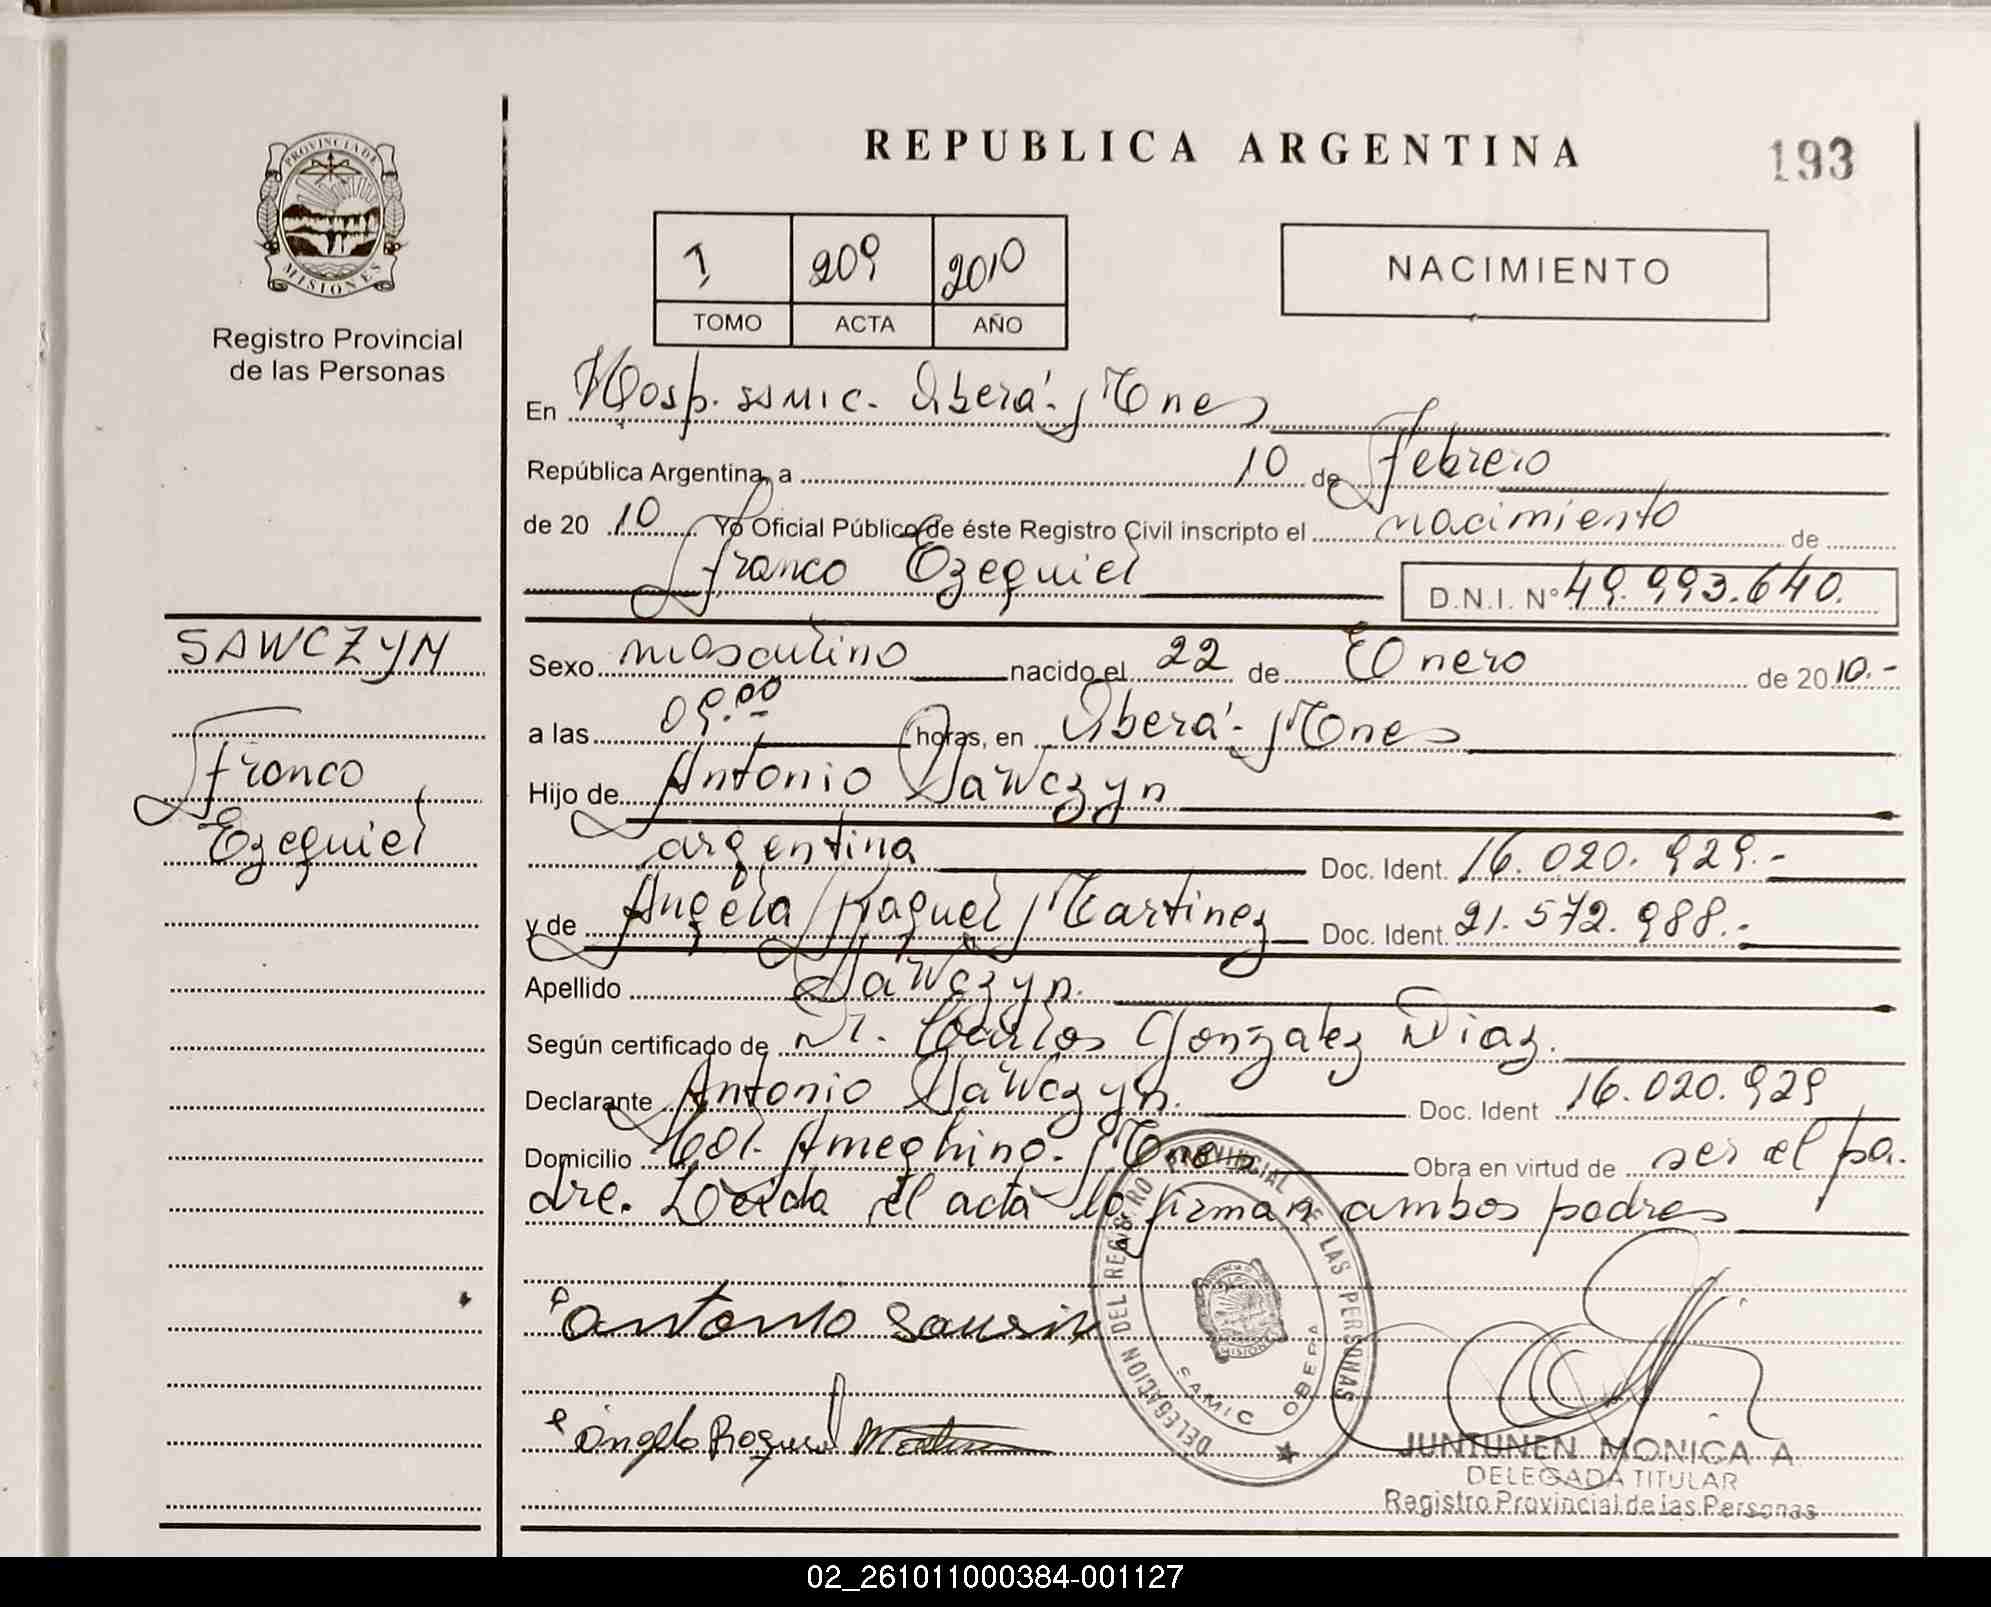 PROVINCIA DE
MISIONES
Registro Provincial
de las Personas
REPUBLICA ARGENTINA
193
1 209 2010
TOMO ACTA AÑO
NACIMIENTO
En Hosp. SAMIC. Oberá. Mnes
República Argentina, a 10 de Febrero
de 20 10 Yo Oficial Público de éste Registro Civil inscripto el nacimiento de
Franco Ezequiel D.N.I. Nº 49.993.640.
SAWCZYN
Franco
Ezequiel
Sexo masculino nacido el 22 de Enero de 2010.-
a las 09.00 horas, en Oberá. Mnes
Hijo de Antonio Sawczyn
argentina Doc. Ident. 16.020.929.-
y de Angela Raquel Martinez Doc. Ident. 21.572.988.-
Apellido Sawczyn.
Según certificado de Dr. Carlos Gonzalez Diaz.
Declarante Antonio Sawczyn. Doc. Ident 16.020.929
Domicilio Col. Ameghino. Mnes Obra en virtud de ser el pa.
dre. Leida el acta la firman ambos padres
Antonio
Angela Raquel
DELEGACION DEL REGISTRO PROVINCIAL DE LAS PERSONAS
SAMIC OBERA
JUNTUNEN MONICA A
DELEGADA TITULAR
Registro Provincial de las Personas
02_261011000384-001127